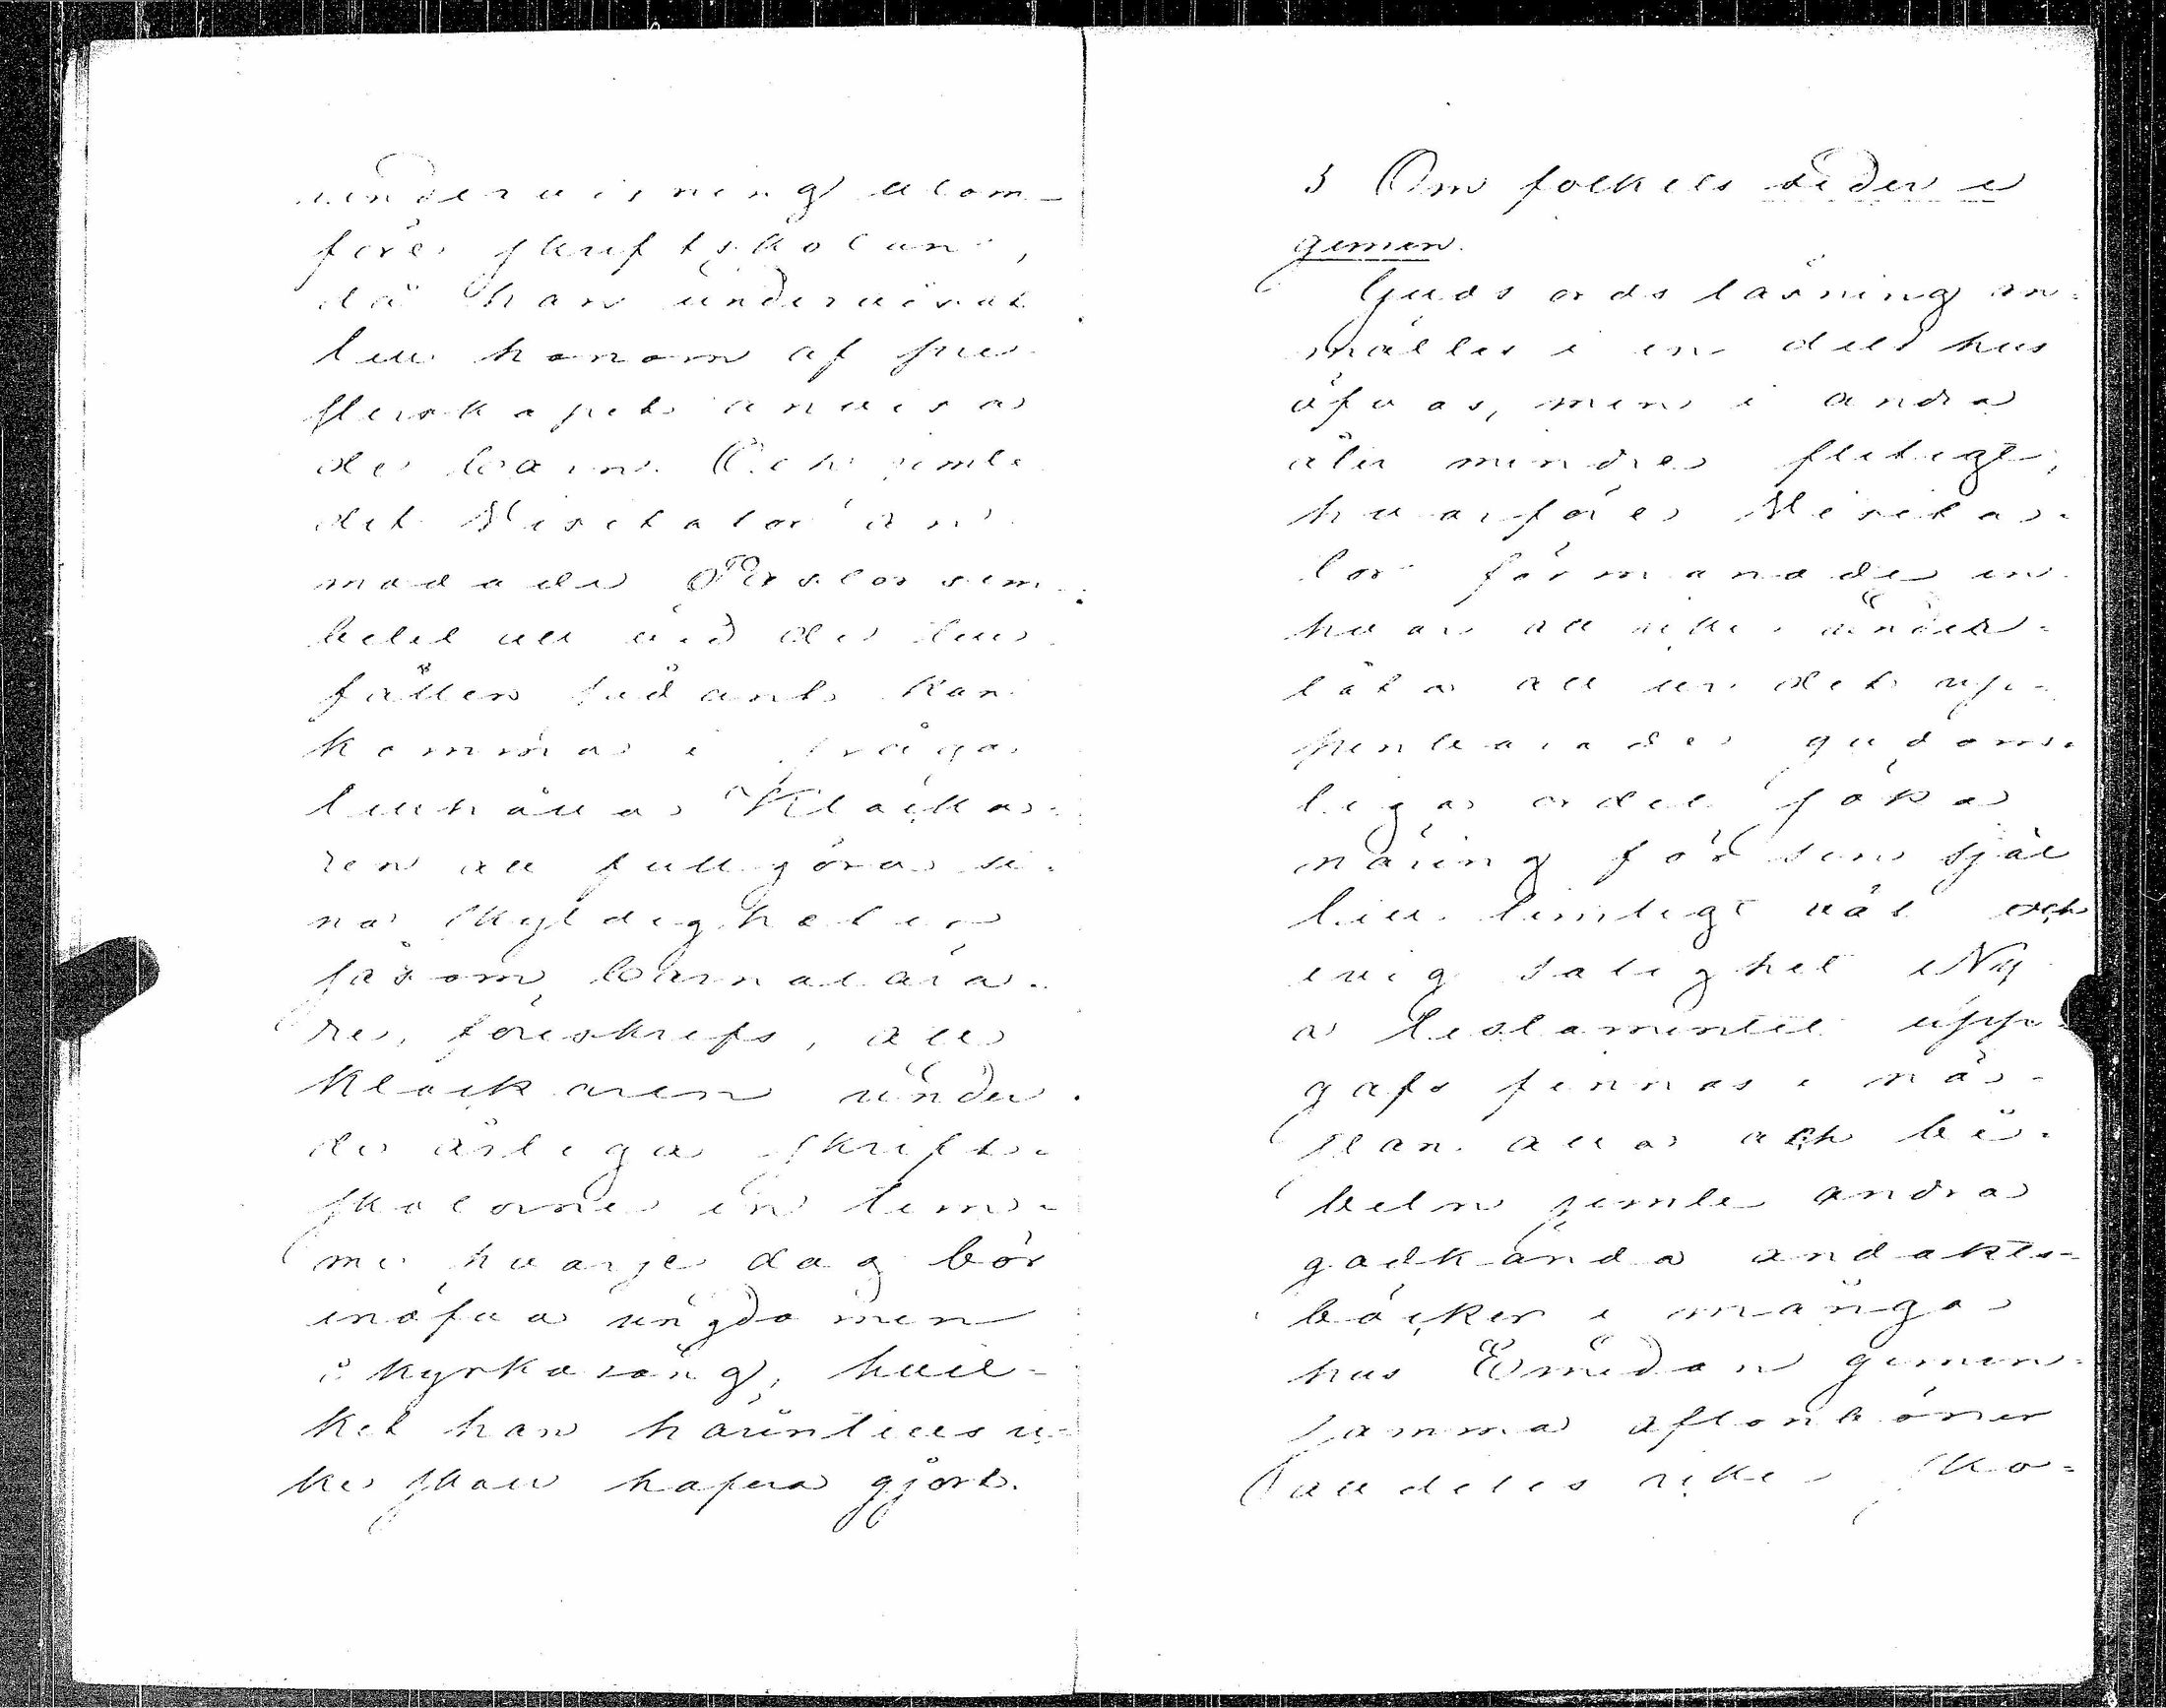 undervisning utom-
före skriftskolan,
då han undervisat
till honom af pre-
sterskapet anvisa-
de barn. Och jemte
det Visitator an-
modade Pastorsem-
betet att vid de till-
fällen sådant kan
komma i fråga
tillhålla Klocka-
ren att fullgöra si-
na skyldigheter
såsom barnalära-
re, föreskrefs, att
klockaren under
de årliga skrift-
skolorna en tim-
me hvarje dag bör
inöfva ungdomen
i kyrkosång, hvil-
ket han härintills ic-
ke skall hafva gjort.
3 Om folkets seder i
gemen.
Guds ords läsning an-
mältes i en del hus
öfvas, men i andra
åter mindre flitigt,
hvarföre Visita-
tor förmanade en
hvar att icke under-
låta att ur det up-
penbarade gudom-
liga ordet söka
näring för sin själ
till timligt väl och
evig salighet. Ny-
a testamentet upp-
gafs finnas i nä-
stan alla och bi-
beln jemte andra
godkända andakts-
böcker i många
hus. Emedan gemen-
samma aftonböner
alldeles icke sko-